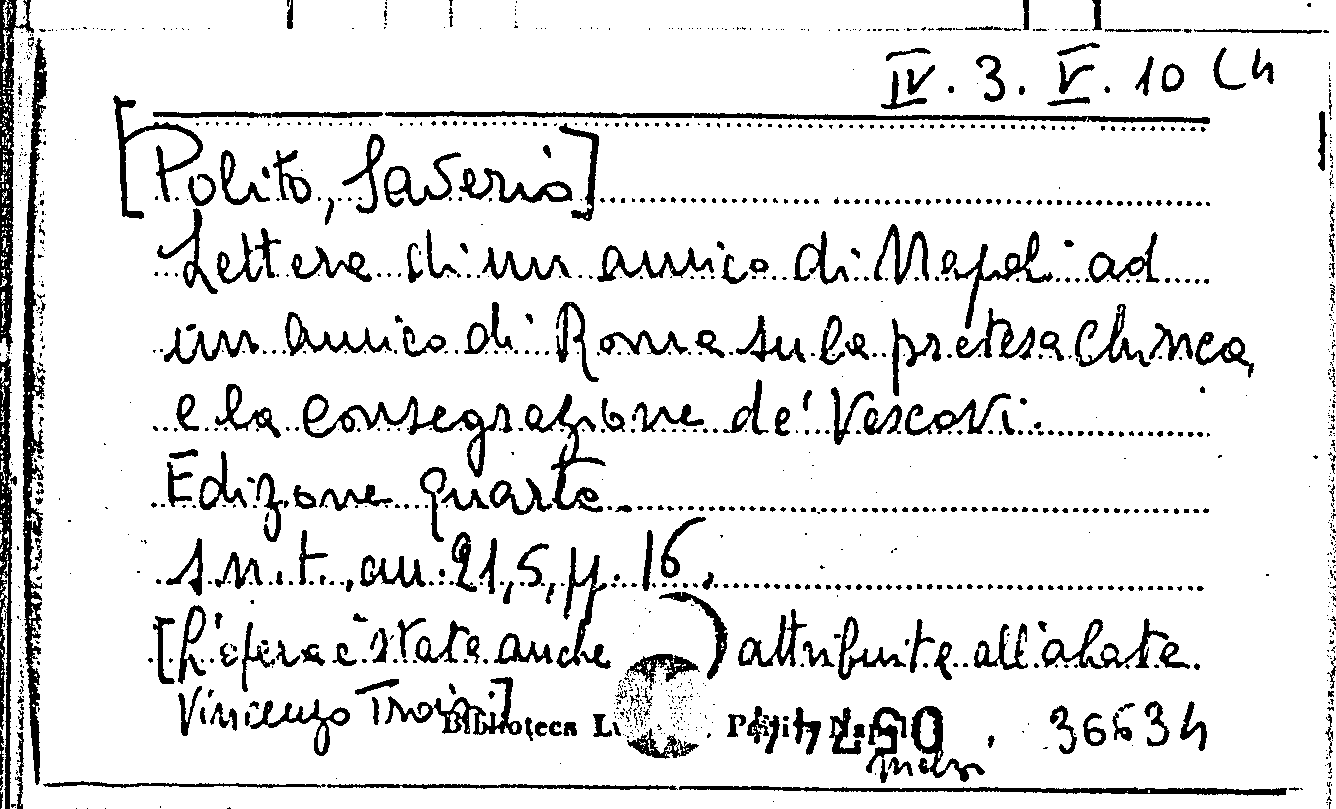 IV. 3. V. 10 (4
[Polito, Saverio]
Lettera di un amico di Napoli ad
un amico di Roma su la pretesa Chinea,
e la consegrazione de' Vescovi.
Edizone quarta.
s.n.t., cm. 21,5, pp. 16.
[L'opera è stata anche attribuita all'abate
Vincenzo Troisi]
Biblioteca 36634